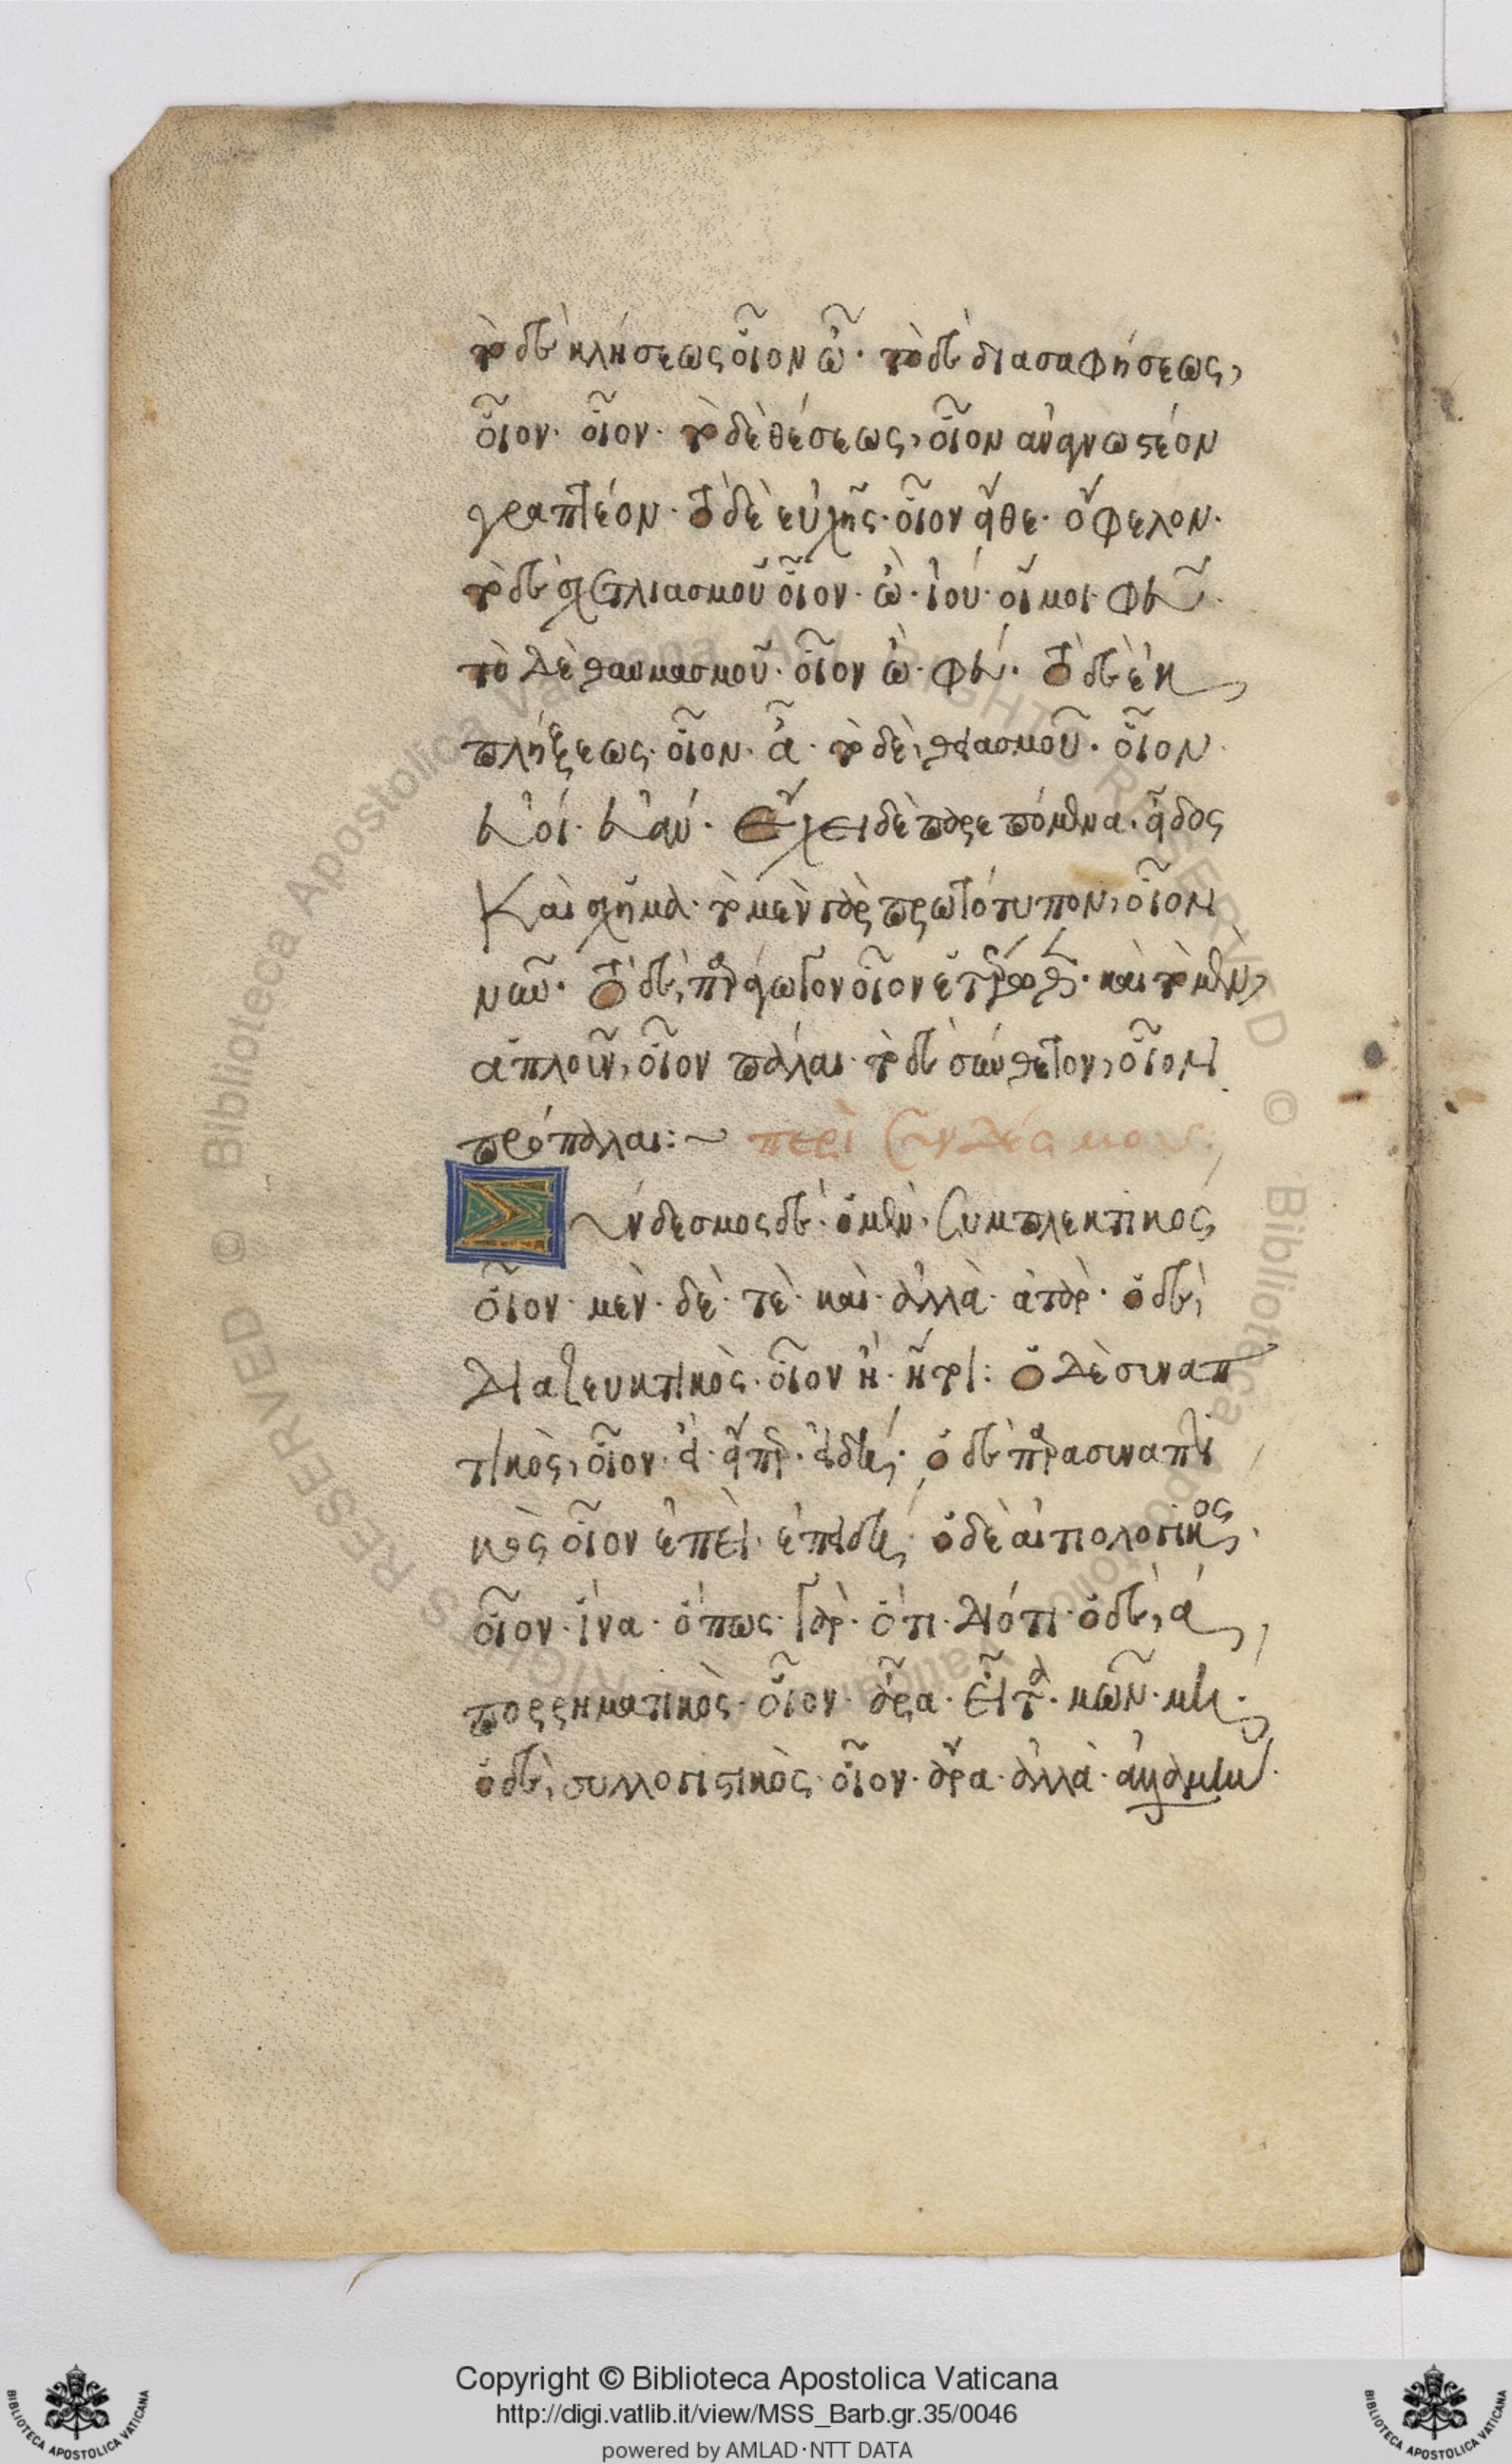 τὸ δὲ κλήσεως οἷον ὦ· τὸ δὲ διασαφήσεως,
οἷον· οἷον· τὸ δὲ θέσεως, οἷον ἀναγνωστέον
γραπτέον· τὸ δὲ εὐχῆς· οἷον εἴθε· ὄφελον·
τὸ δὲ σχετλιασμοῦ οἷον· ὢ· ἰού· οἴμοι· φεῦ·
τὸ δὲ θαυμασμοῦ· οἷον ὢ· φεύ· τὸ δὲ ἐκ
πλήξεως· οἷον· ἆ· τὸ δὲ θειασμοῦ· οἷον
εὐοί· εὐάν· ἔχει δὲ παρεπόμενα· εἶδος
καὶ σχῆμα· τὸ μὲν γὰρ πρωτότυπον, οἷον
νῦν· τὸ δὲ παράγωγον οἷον καὶ τὸ μὲν
ἁπλοῦν, οἷον πάλαι· τὸ δὲ σύνθετον, οἷον
πρόπαλαι:~ περὶ συνδέσμου:
Σύνδεσμος δὲ· ὁ μὲν· συμπλεκτικός
οἷον· μὲν· δὲ· τὲ· καὶ· ἀλλὰ· ἀτὰρ· ὁ δὲ
διαζευκτικὸς· οἷον ἢ· ἤτοι: ὁ δὲ συναπ
τικὸς, οἷον· εἰ· εἴπερ· εἰ δὲ· ὁ δὲ παρασυναπτι
κὸς οἷον ἐπεὶ· ἐπειδή· ὁ δὲ αἰτιολογικός·
οἷον· ἵνα· ὅπως· γὰρ· ὅτι· διότι· ὁ δὲ ἀ
πορρηματικὸς· οἷον· ἆρα· εἶτα· μῶν· μή·
ὁ δὲ συλλογιστικὸς· οἷον· ἄρα· ἀλλὰ· ἀλλαμήν·
Copyright © Biblioteca Apostolica Vaticana
http://digi.vatlib.it/view/MSS_Barb.gr.35/0046
powered by AMLAD·NTT DATA